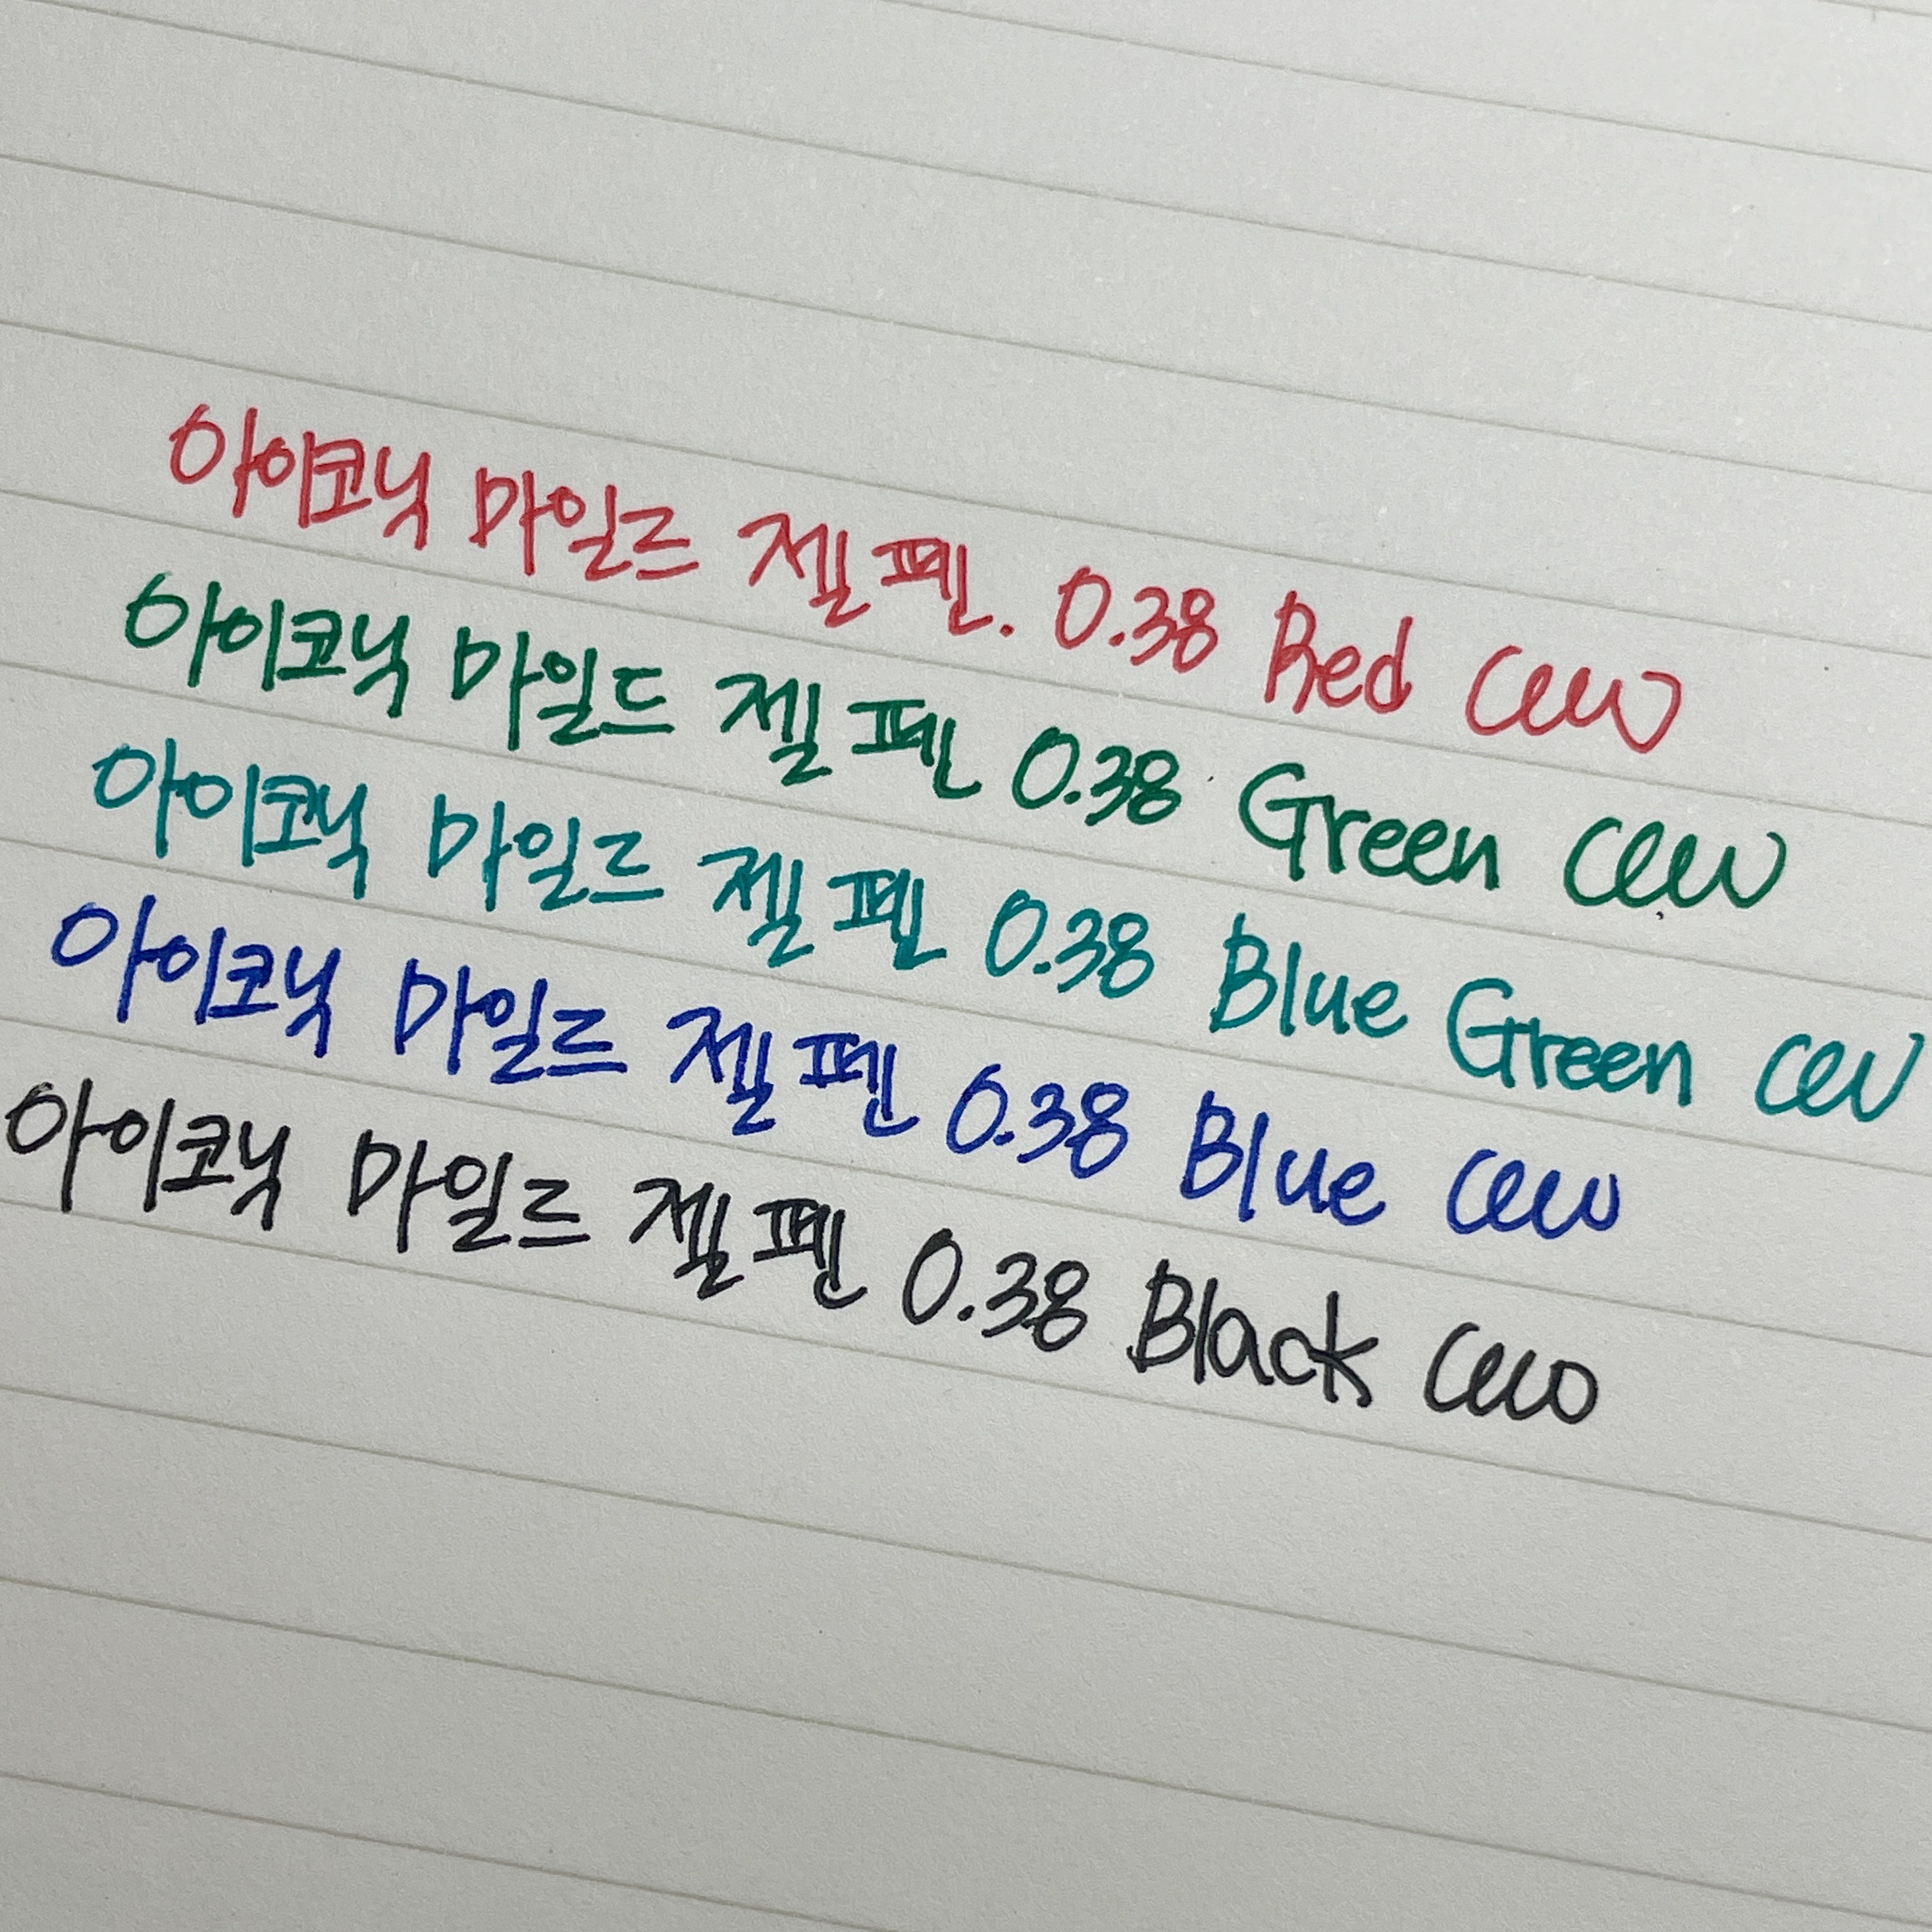 아이코닉 마일드 젤 펜. 0.38 Red
아이코닉 마일드 젤 펜 0.38 Green
아이코닉 마일드 젤 펜 0.38 Blue Green
아이코닉 마일드 젤 펜 0.38 Blue
아이코닉 마일드 젤 펜 0.38 Black